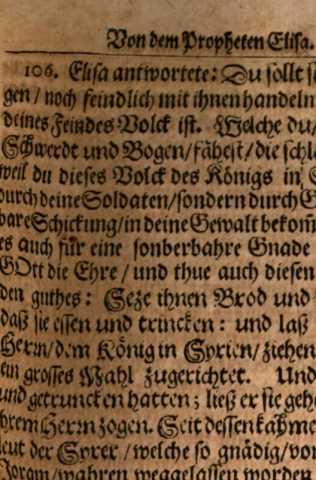 Von dem Propheten Elisa.
106. Elisa antwortete: Du sollt
gen / noch feindlich mit ihnen handeln
deines Feindes Volck ist. Welche du /
Schwerdt und Bogen / fähest / die schla
weil du dieses Volck des Königs in
durch deine Soldaten / sondern durch G
bare Schickung / in deine Gewalt bekom̃
es auch für eine sonderbahre Gnade
GOtt die Ehre / und thue auch diesen
den guthes: Seze ihnen Brod und
daß sie essen und trincken: und laß
Herrn / dem König in Syrien / ziehen
ein grosses Mahl zugerichtet. Und
und getruncken hatten; ließ er sie geh
ihrem Herrn zogen. Seit dessen kahme
leut der Syrer / welche so gnädig / vo
Joram / wahren weggelassen worden